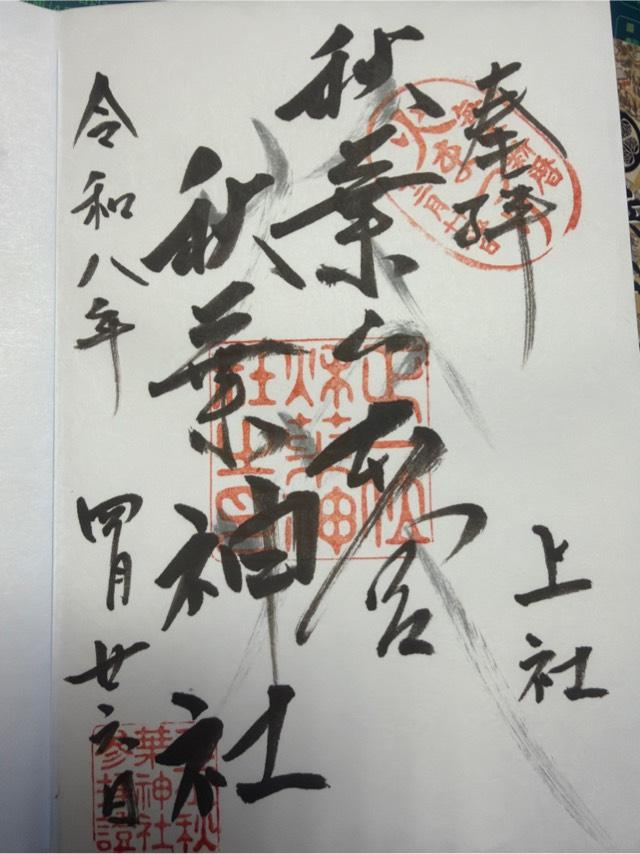 奉拝
上社
秋葉山本宮
秋葉神社
令和八年
四月廿六日
正一位
秋葉神
社之印
秋
葉神社
参拝證